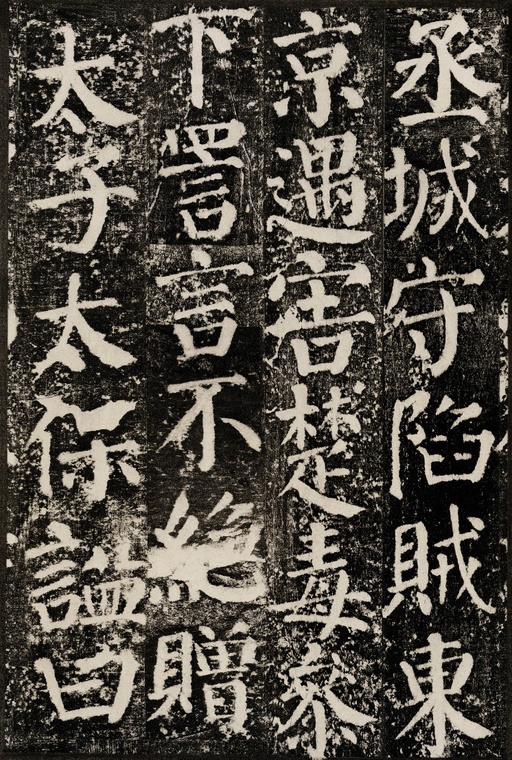 丞城守陷賊東
京遇害楚毒參
下詈言不絶贈
太子太保謚曰